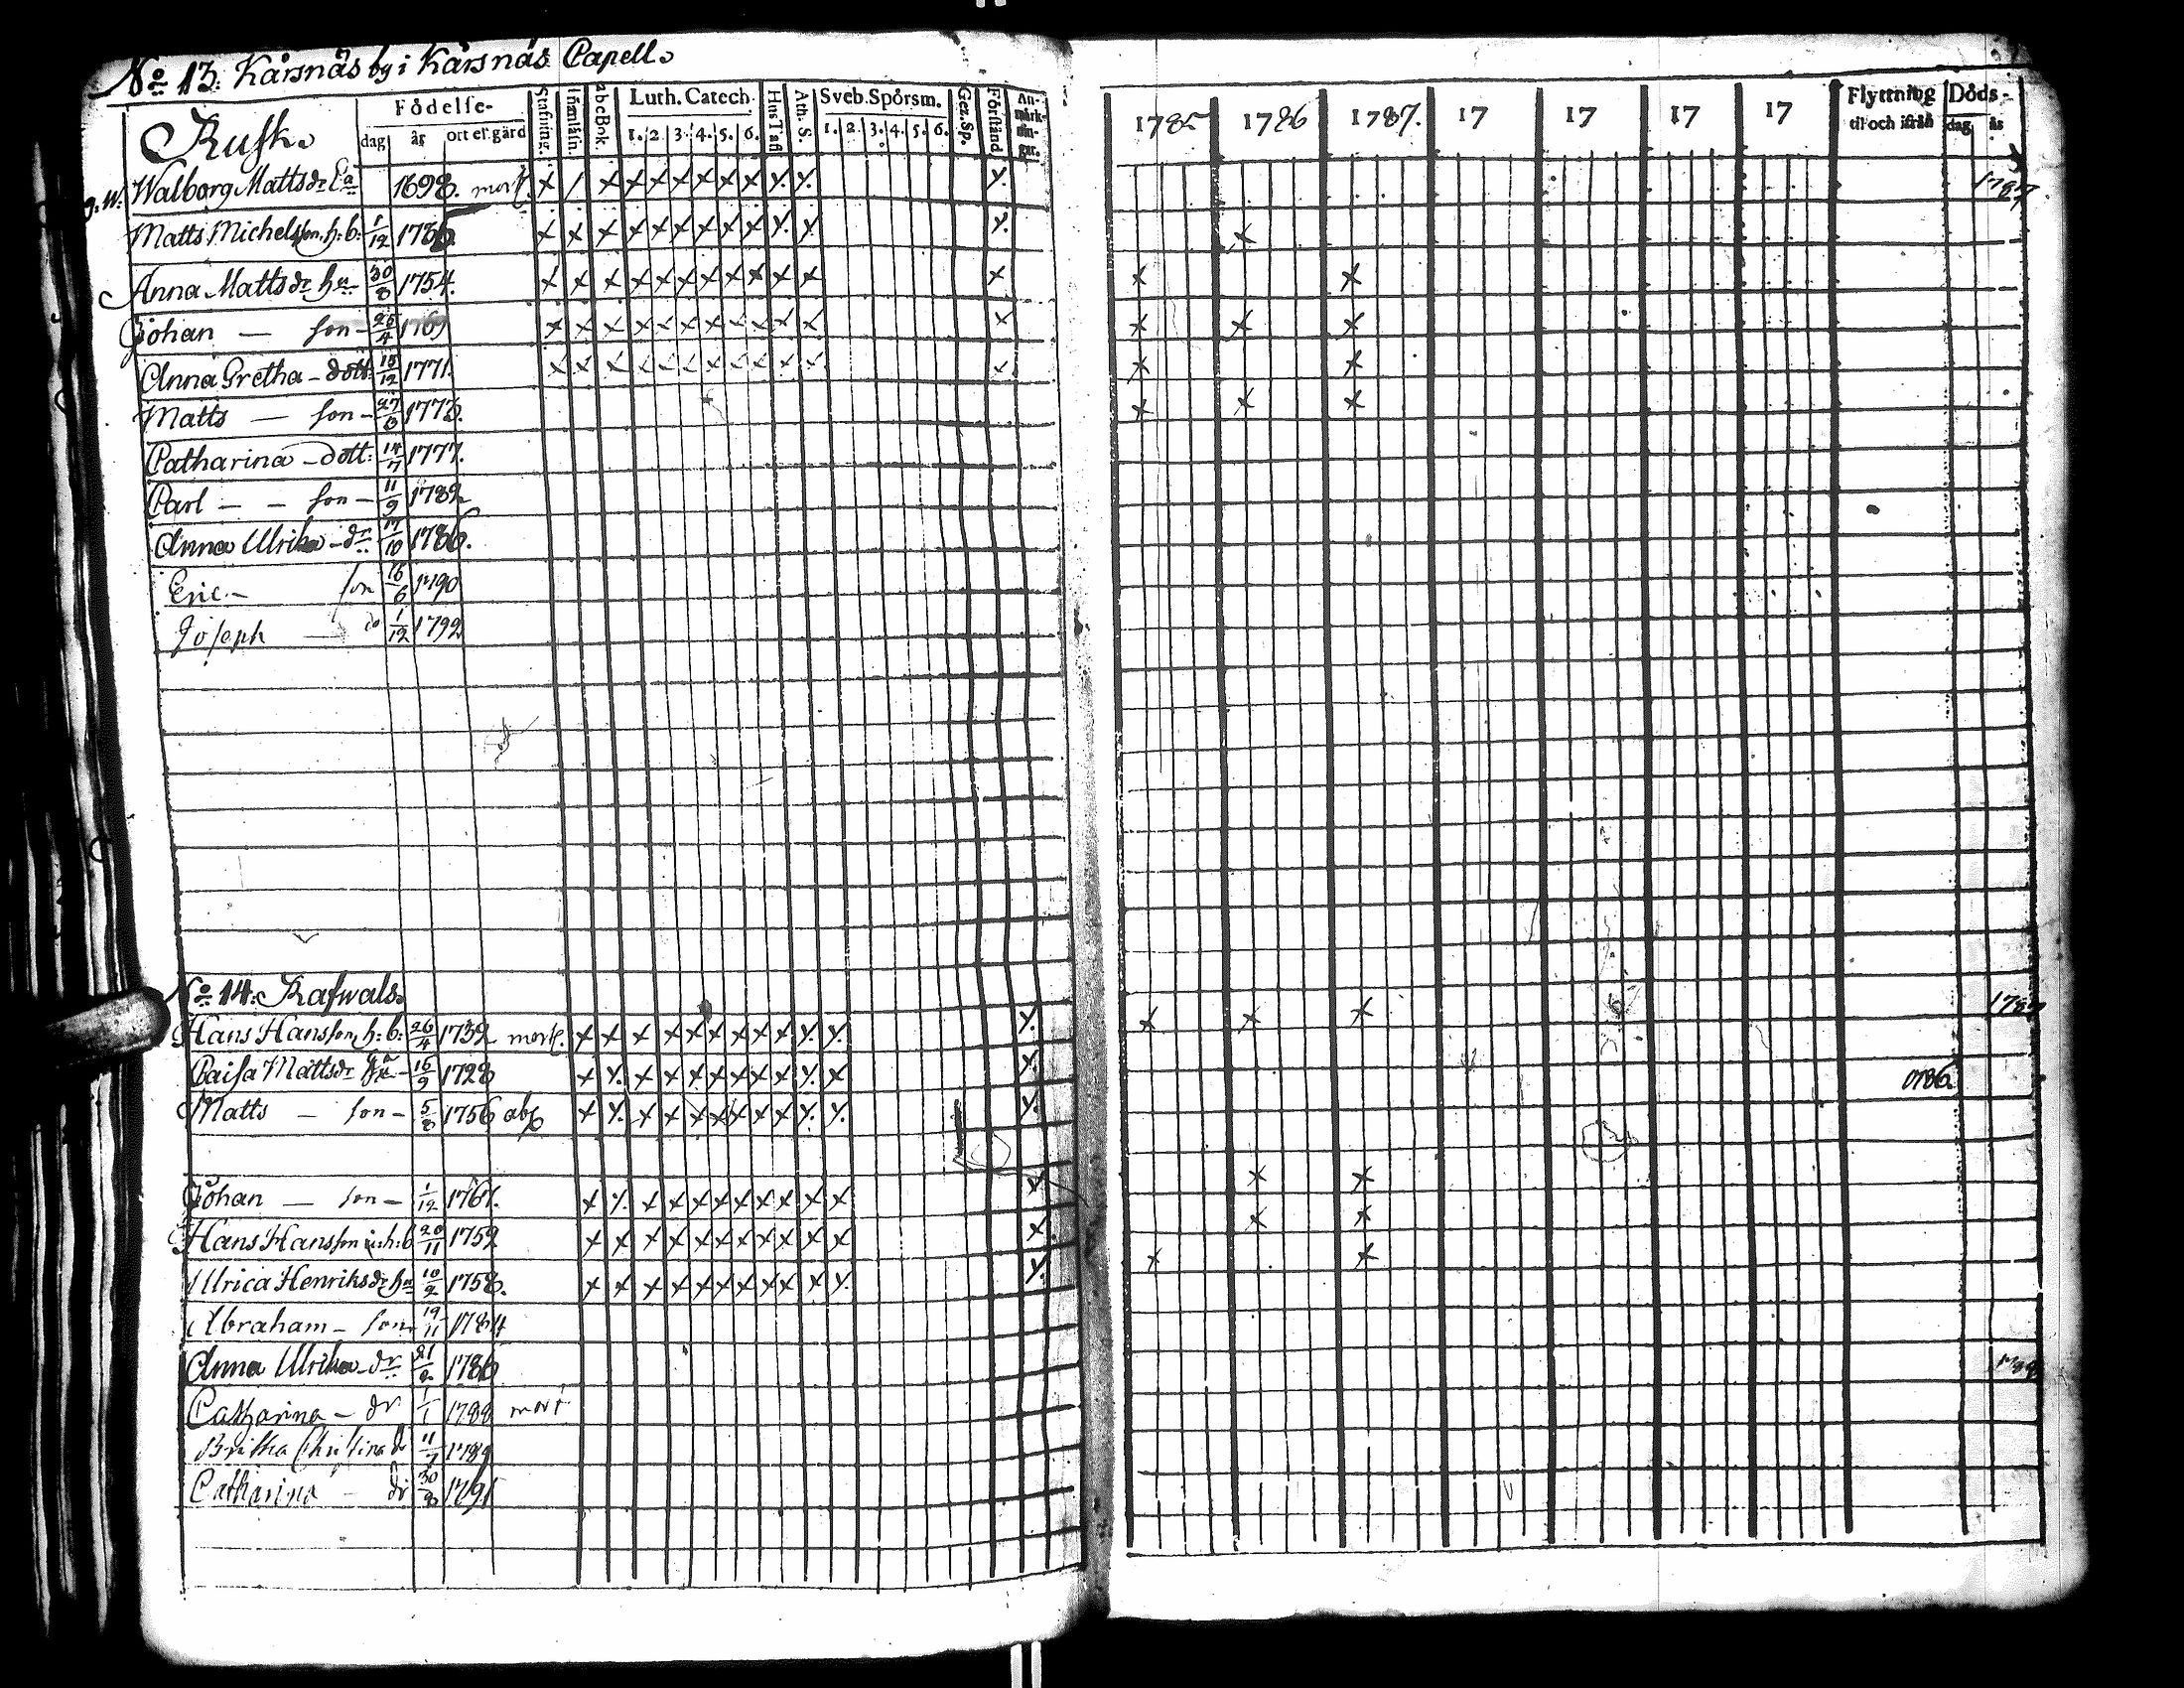 No 13. Kårsnäs by i Kårsnäs Capell.
Födelse- Stafning. Innanläsn. abcBok. Luth. Catech. HusTafl Ath. S. Sveb. Spörsm. Gez. Sp. Förstånd Anmärkningar.
Rusk. dag år ort el. gård 1. 2. 3. 4. 5. 6. 1. 2. 3. 4. 5. 6.
1785 1786 1787. 17 17 17 17 Flyttning til och ifrån Döds- dag år
g. w. Walborg Mattsdr 1698. mort. 1787
Matts Michelsson, h: b: 1/12 173
Anna Mattsdr hu 30/8 1754.
Johan — son – 25/4 1769
Anna Gretha – dott. 15/12 1771.
Matts — son – 27/8 1773.
Catharina – dott: 14/7 1777.
Carl — — son – 11/9 1782
Anna Ulrika – dr. 17/10 1786.
Eric – son 16/6 1790
Joseph — do 1/12 1792
No 14. Rafwals.
Hans Hansson, h: b: 26/4 1732 mort. 1787
Caisa Mattsdr 16/9 1728
Matts — son – 5/8 1756 abs 1786
Johan — son – 1/12 1761.
Hans Hansson h: b 20/11 1752
Ulrica Henriksdr hu 10/2 1758.
Abraham – son 19/11 1784
Anna Ulrika – dr. 21/2 1786
Catharina – dr 1/1 1788 mort 1788
Britha Christina dr 11/7 1789
Catharina – dr 30/8 1791